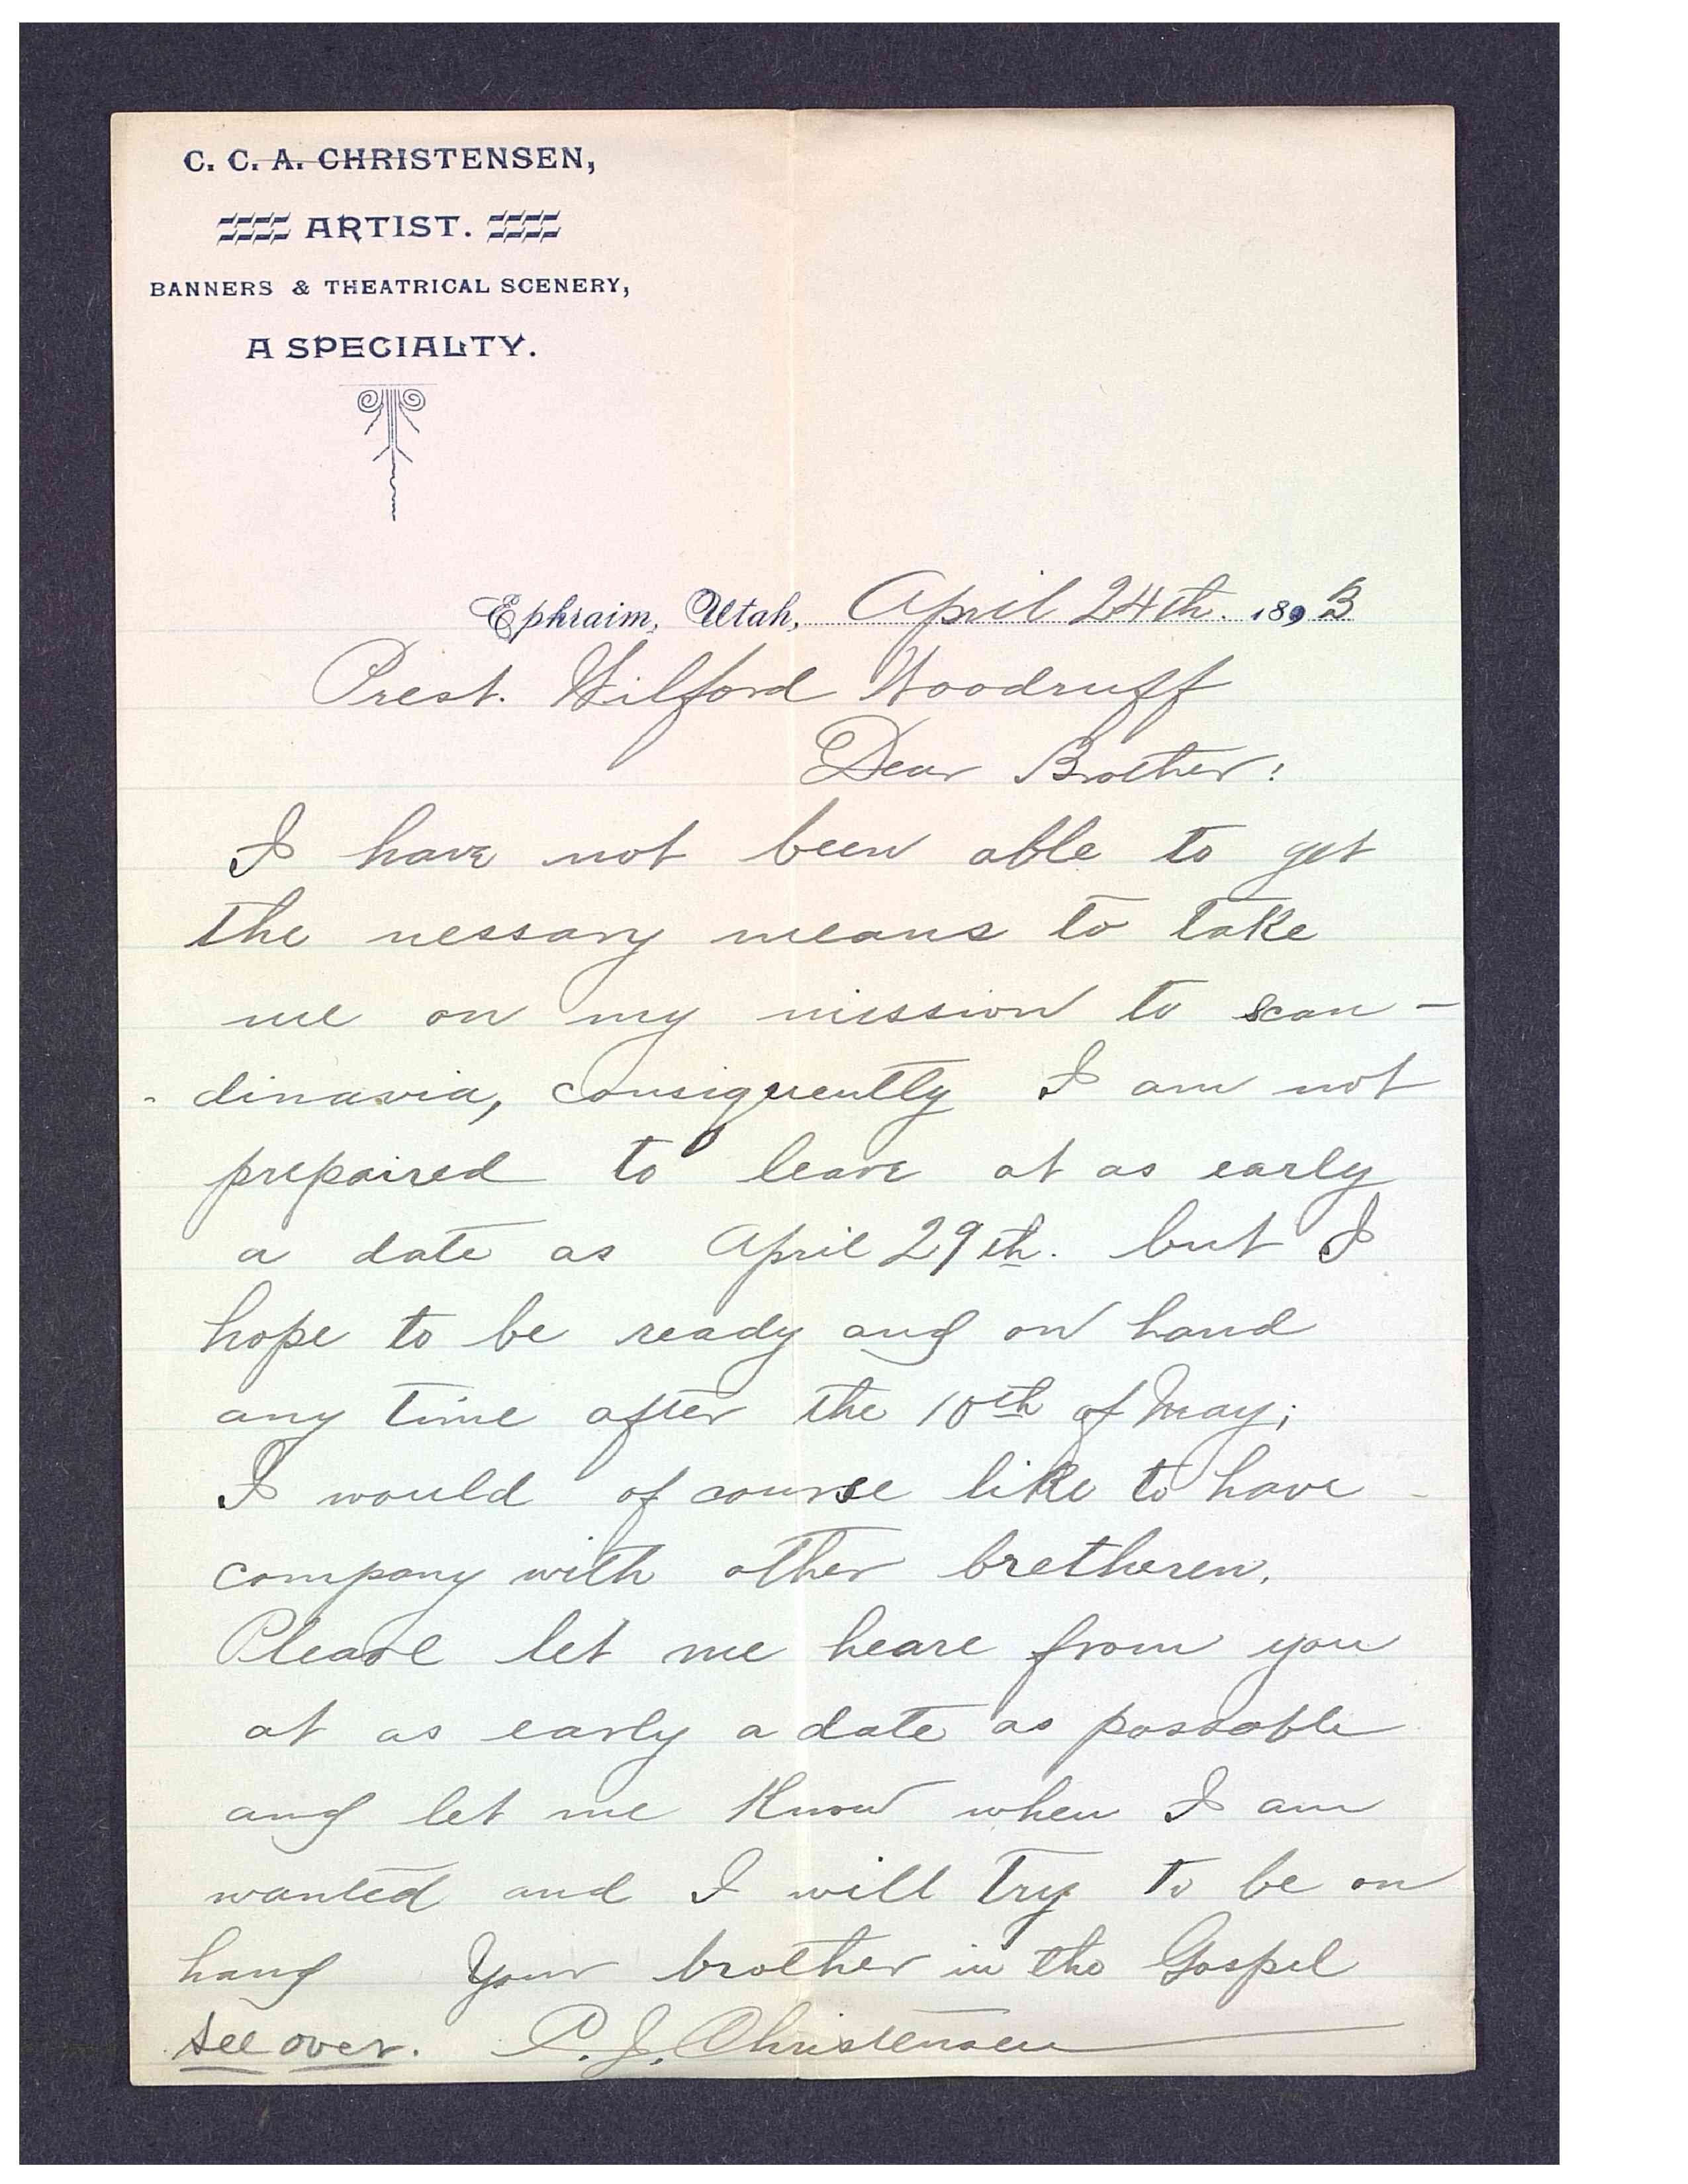 C. C. A. CHRISTENSEN,
ARTIST.
BANNERS & THEATRICAL SCENERY,
A SPECIALTY.
Ephraim, Utah, April 24th. 1893
Prest. Wilford Woodruff
Dear Brother:
I have not been able to get
the nessary means to take
me on my mission to scan-
-dinavia, consiquently I am not
prepaired to leave at as early
a date as April 29th. but I
hope to be ready and on hand
any time after the 10th of May;
I would of course like to have
company with other bretheren.
Please let me heare from you
at as early a date as possable
and let me know when I am
wanted and I will try to be on
hand Your brother in the Gospel
see over. C. J. Christensen